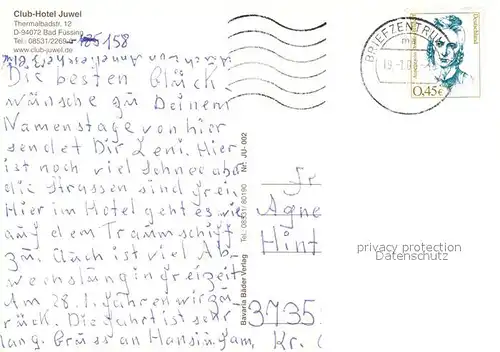 Club-Hotel Juwel
Thermalbadstr. 12
D-94072 Bad Füssing
Tel.: 08531/2269-0
www.club-juwel.de
185 158
Auch von Annelies
Die besten Glück-
wünsche zu Deinem
Namenstage von hier
sendet Dir Leni. Hier
ist noch viel Schnee aber
die Strassen sind frei.
Hier im Hotel geht es wie
auf dem Traumschiff
zu. Auch ist viel Ab-
wechslung in Freizeit.
Am 28.1. fahren wir zu-
rück. Die Fahrt ist sehr
lang. Gruss an Hansi
Bavaria Bäder Verlag Tel.: 08531/80190 Nr. JU-002
BRIEFZENTRUM
19.-1.0
Deutschland
0,45€
Fr
Agne
Hint
3735
Kr.
privacy protection
Datenschutz